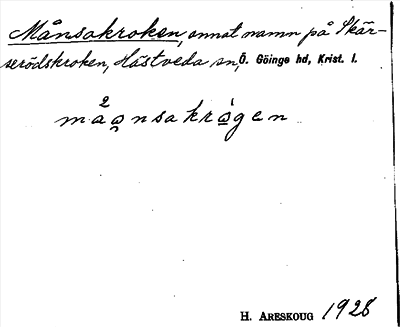 Månsakroken, annat namn på Skär-
serödskroken, Hästveda sn, Ö. Göinge hd, Krist. l.
2
må̱o̱nsakrò̱gen
H. ARESKOUG 1928